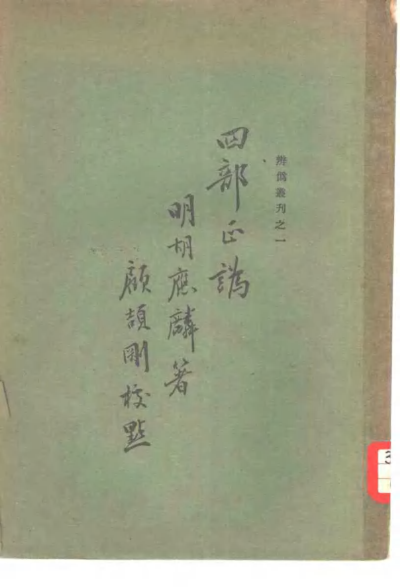 辨僞叢刊之一
四部正譌
明胡應麟著
顧頡剛校點